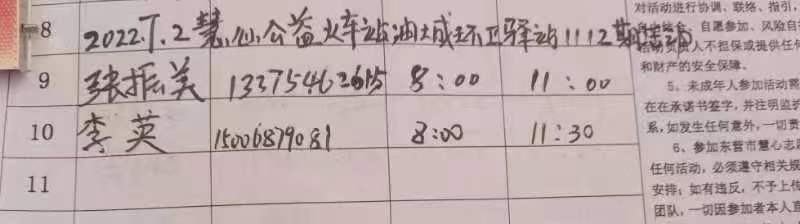 8 2022.7.2慧心公益火车站油城环卫驿站1112期活动
9 张振美 13375462615 8:00 11:00
10 李英 15006879081 8:00 11:30
11
对活动进行协调、联络、指引,
自愿参加、风险自
人不担保或提供任何
和财产的安全保障。
5、未成年人参加活动需
在在承诺书签字,并注明监护
系,如发生任何意外,一切责
6、参加东营市慧心志愿
任何活动,必须遵守相关规
安排;如有违反,不予上传
团队,一切因参加者本人直